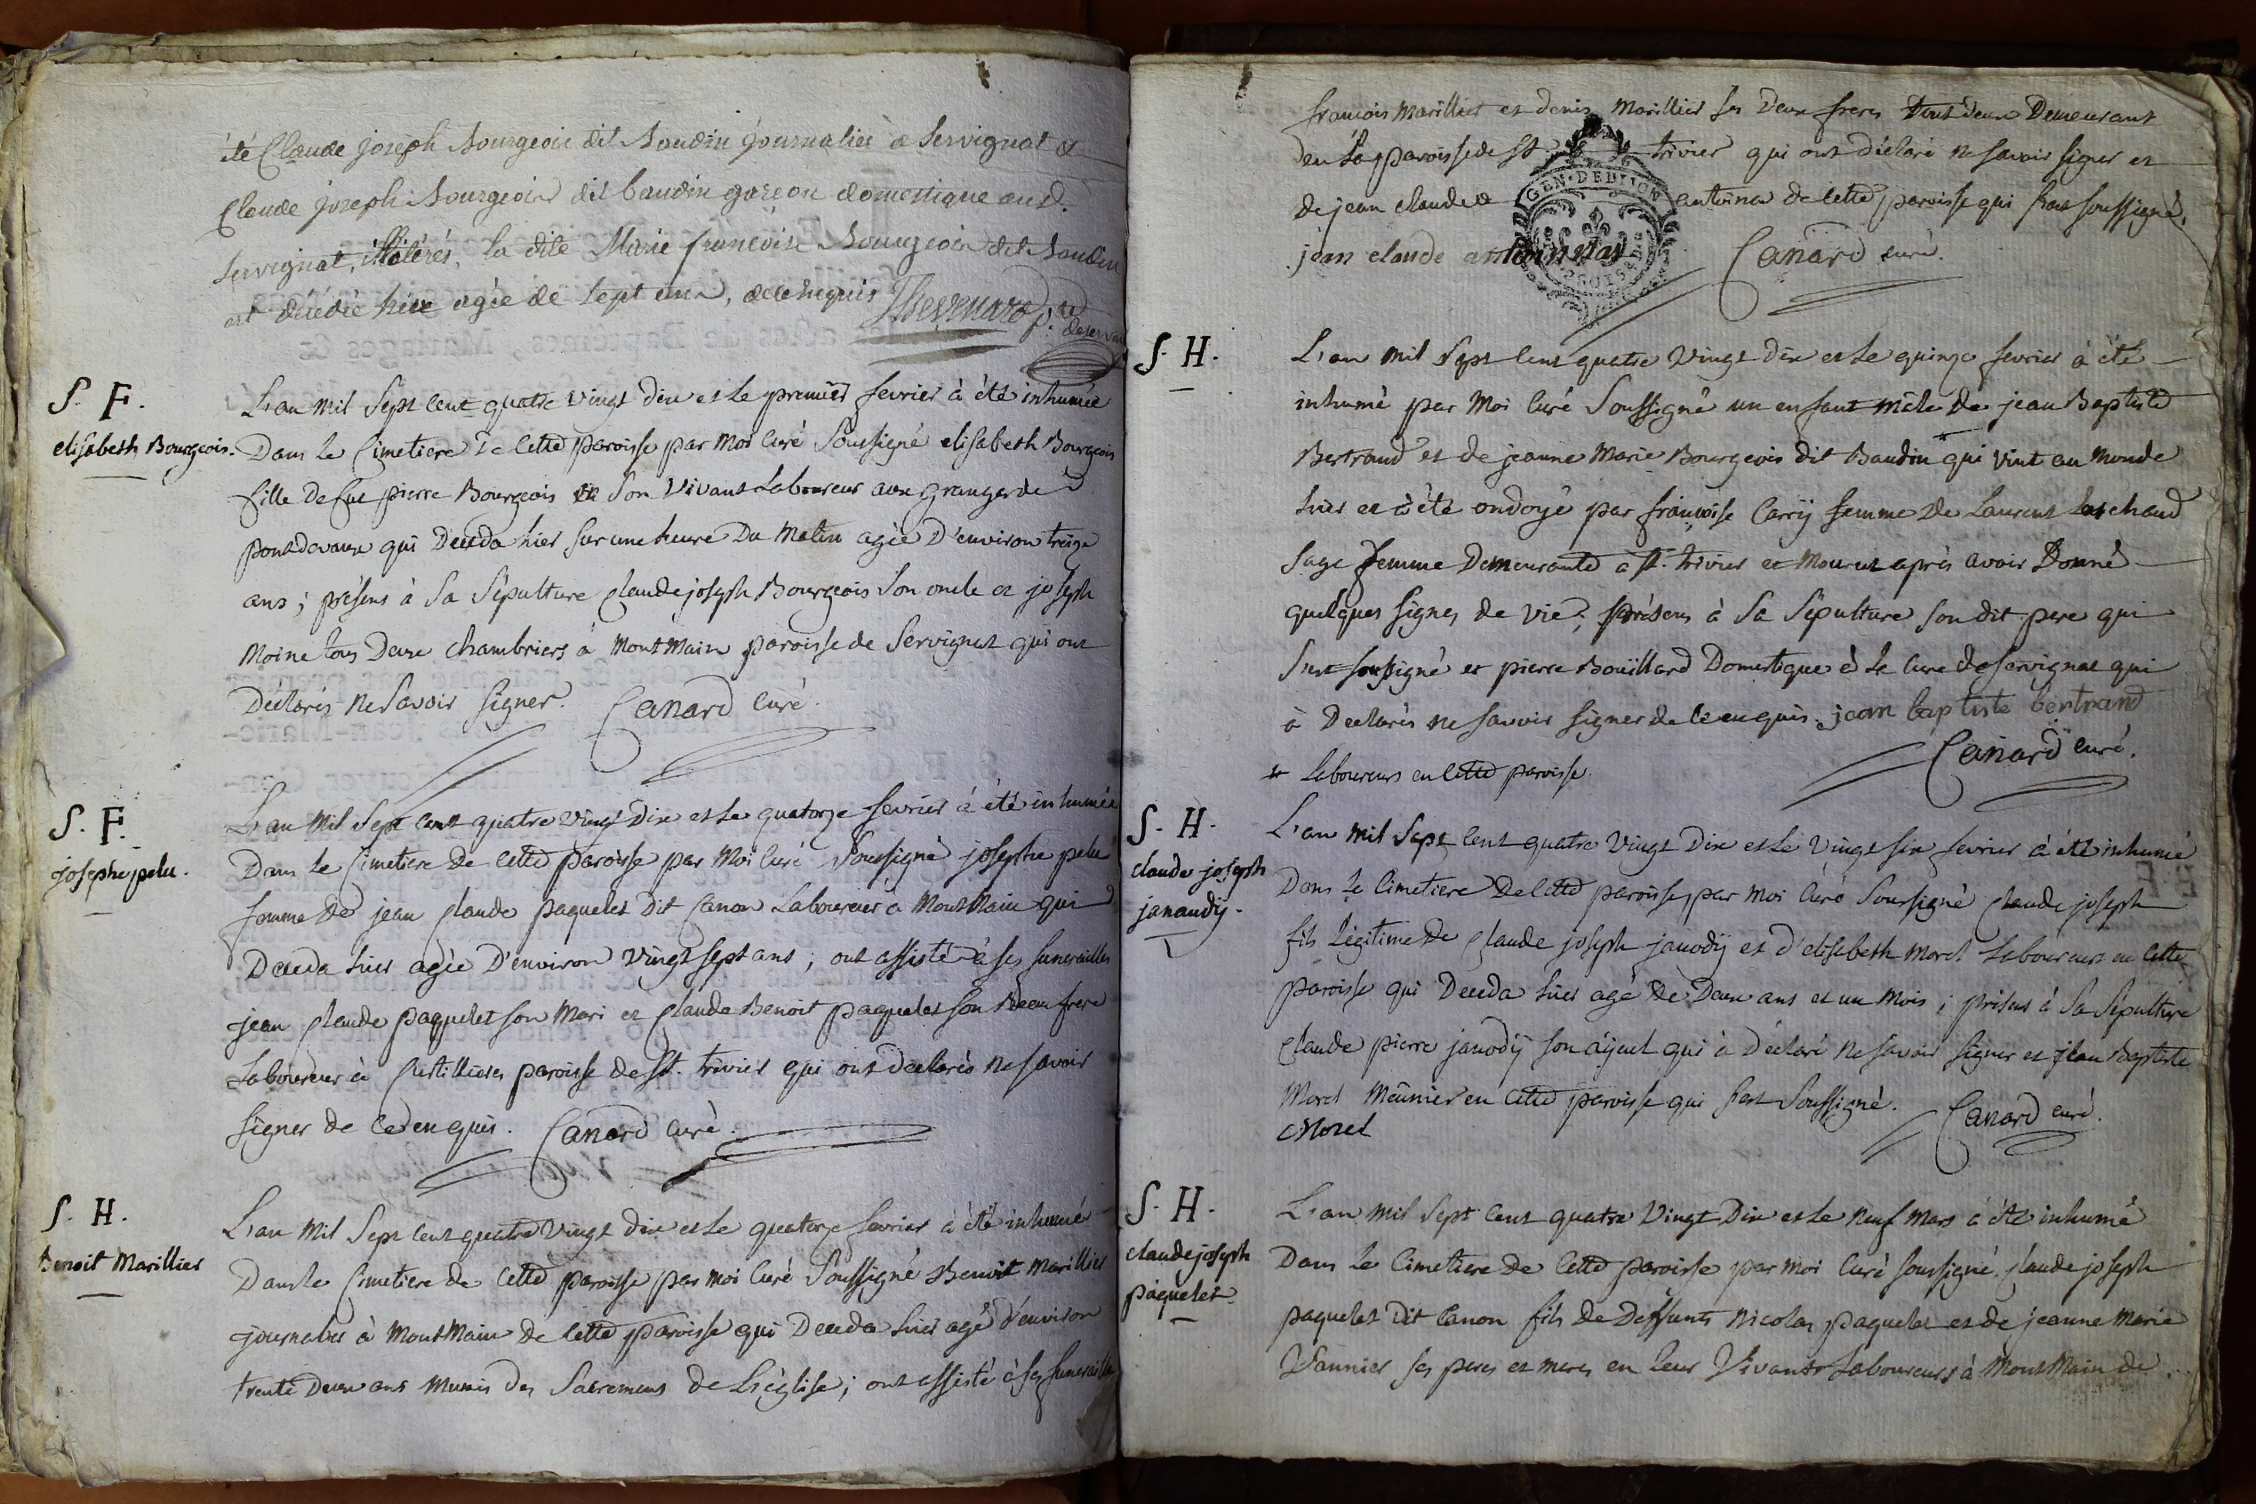 été Claude joseph Bourgeois dit Baudin journalier à Servignat et
Claude joseph Bourgeois dit baudin garçon domestique aud.
Servignat, illitérés, la dite Marie françoise Bourgeois dit Baudin
est décédée hier agée de sept ans, de ce enquis Thevenard p.tre
desservant
S. F.
elisabeth Bourgeois.
L'an mil Sept Cent quatre vingt dix et le premier fevrier à été inhumée
Dans le Cimetiere de Cette paroisse par Moi Curé Soussigné elisabeth Bourgeois
fille de fut pierre Bourgeois en Son Vivant Laboureur aux granges de
pontdevaux qui Deceda hier sur une heure Du Matin agée D'environ treize
ans ; présens à Sa Sépulture Claude joseph Bourgeois Son oncle et joseph
Moine tous Deux chambriers à Montmain paroisse de Servignat qui ont
Déclarés ne Savoir Signer. Canard Curé.
S. F.
josephe pelu.
L'an Mil Sept Cent quatre Vingt Dix et le quatorze fevrier à été inhumée
Dans le Cimetiere De Cette paroisse par Moi Curé Soussigné josephe pelu
femme De jean Claude paquelet Dit Canon Laboureur à MontMain qui
Deceda hier agée D'environ Vingt sept ans ; ont assisté à ses funerailles
jean Claude paquelet son Mari et Claude Benoit paquelet son Beau frere
Laboureur à Curtillieres paroisse de St. trivier qui ont declarés ne Savoir
Signer de Ce enquis. Canard Curé.
S. H.
Benoit Marillier
L'an Mil Sept Cent quatre Vingt dix et le quatorze fevrier à été inhumé
Dans le Cimetiere de Cette paroisse par moi Curé Soussigné Benoit Marillier
journalier à MontMain de Cette paroisse qui Deceda hier agé d'environ
trente Deux ans Munis Des Sacremens De L'église ; ont assisté à ses funerailles
françois Marillier et denis Marillier ses Deux freres tous deux Demeurant
Deu La paroisse de St trivier qui ont déclaré ne savoir signer et
de jean claude antoinnat de Cette paroisse qui s'est soussigné.
jean claude antoinnat Canard curé.
GEN. DE DIJON
S. H.
L'an Mil Sept Cent quatre Vingt Dix et Le quinze fevrier à été
inhumé par Moi Curé Soussigné un enfant mâle de jean Baptiste
Bertrand et de jeanne Marie Bourgeois dit Baudin * qui Vint au Monde
hier et à été ondoyé par françoise Carrÿ femme De Laurent
Sage femme Demeurante à St. trivier et Mourut après avoir Donné
quelques signes de vie ; présens à Sa Sépulture son dit pere qui
s'est soussigné et pierre Boüillard Domestique à la Cure de servignat qui
à Declarés ne savoir signer de Ce enquis. jean baptiste bertrand
Canard Curé.
* Laboureurs en Cette paroisse.
S. H.
claude joseph
janaudÿ.
L'an Mil Sept Cent quatre Vingt Dix et le Vingt six fevrier à été inhumé
Dans le Cimetiere De Cette paroisse par Moi Curé Soussigné Claude joseph
fils Légitime De Claude joseph janodÿ et d'elisabeth Morel Laboureurs en Cette
paroisse qui Deceda hier agé De Deux ans et un Mois ; présens à Sa Sépulture
Claude pierre janodÿ son ayeul qui à Déclaré Ne Savoir signer et jean Baptiste
Morel Meûnier en Cette paroisse qui s'est Soussigné. Canard curé.
Morel
S. H.
claude joseph
paquelet.
L'an Mil Sept Cent quatre Vingt Dix et le Neuf Mars à été inhumé
Dans Le Cimetiere de Cette paroisse par moi Curé soussigné Claude joseph
paquelet Dit Canon fils de Deffunts Nicolas paquelet et de jeanne Marie
Vannier ses peres et meres en leur Vivants Laboureurs à MontMain de